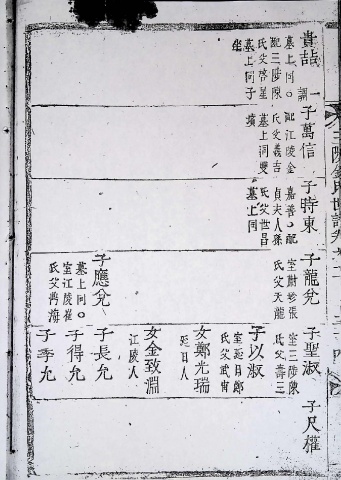 貴喆
墓上同○
配三陟陳
氏父啓星
墓上同子
坐
子萬信
配江陵金
氏父義吉
墓上同雙
墳
子時東
嘉善○配
貞夫人孫
氏父世昌
墓上同
子龍兌
室蔚珍張
氏父天龍
子應兌
墓上同○
室江陵崔
氏父
子聖淑
室三陟陳
氏父壽三
子以淑
室延日鄭
氏父武甯
女鄭光瑞
延日人
女金致淵
江陵人
子長允
子得允
子季允
子尺權
三陟金氏世譜卷之